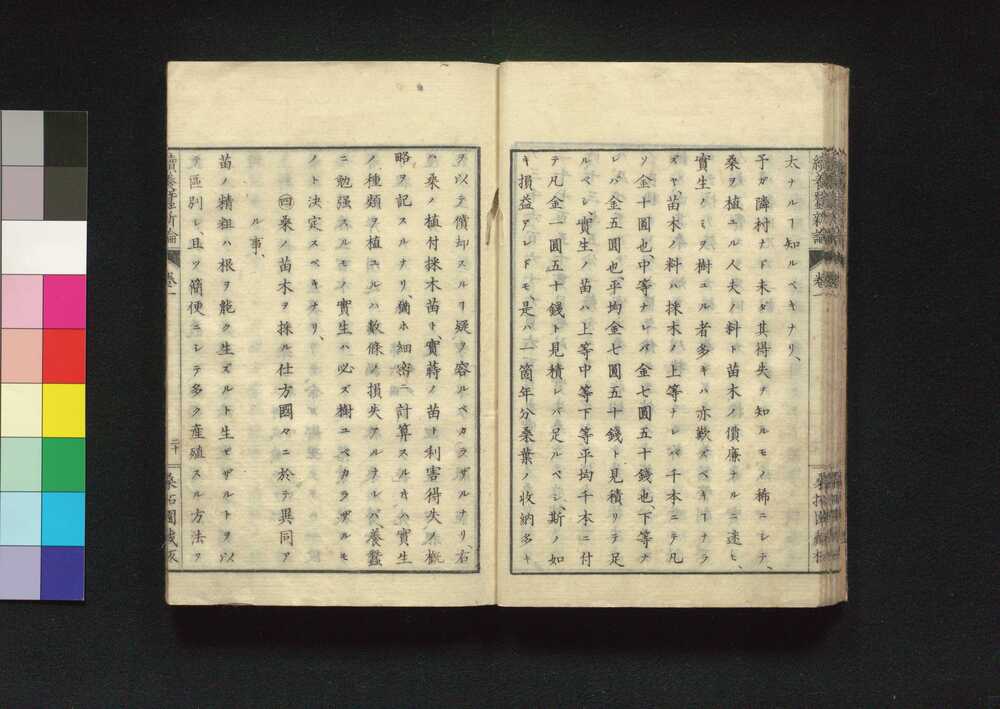 太ナルヿ知ルベキナリ、
予ガ隣村ナド未ダ其得失ヲ知ルモノ稀ニシテ、
桑ヲ植ユル人夫ノ料ト苗木ノ價廉ナルニ迷ヒ、
實生ノミヲ樹ユル者多キハ亦歎ズベキヿナラ
ズヤ、苗木ノ料ハ採木ノ上等ナレバ千本ニテ凡
ソ金十圓也、中等ナレバ金七圓五十錢也、下等ナ
レバ金五圓也、平均金七圓五十錢ト見積リテ足
ルベシ、實生ノ苗ハ上等中等下等平均千本ニ付
テ凡金一圓五十錢ト見積レバ足ルベシ、斯ノ如
キ損益アレドモ、是ハ一箇年分桑葉ノ收納多キ
ヲ以テ償却スルヿ疑ヲ容ルベカラザルナリ、右
ハ桑ノ植付採木苗ト、實蒔ノ苗ト利害得失ノ概
略ヲ記スルナリ、猶ホ細密ニ計算スルキハ實生
ノ種類ヲ植ユルハ數條ノ損失アルナレバ、養蠶
ニ勉强スルモノ實生ハ必ズ樹ユベカラザルモ
ノト決定スベキナリ、
㊃桑ノ苗木ヲ採ル仕方國々ニ於テ異同ア
ル事、
苗ノ精粗ハ根ヲ能ク生ズルト生ゼザルトヲ以
テ區別シ、且ツ簡便ニシテ多ク産殖スル方法ヲ
續養蠶新論
卷一
二十
桑柘園藏版